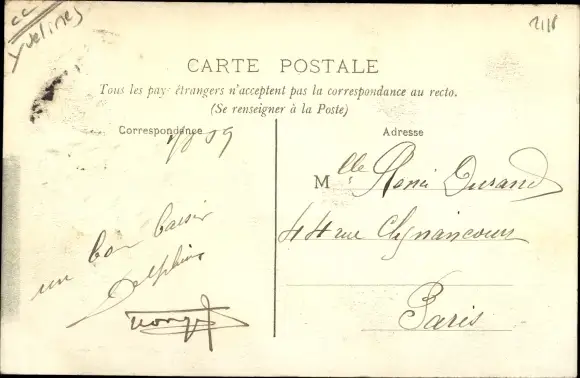 cc
Yvelines
CARTE POSTALE
Tous les pays étrangers n'acceptent pas la correspondance au recto.
(Se renseigner à la Poste)
Correspondance
Adresse
un bon baiser
Delphine
Mlle Durand
44 rue Clignancourt
Paris